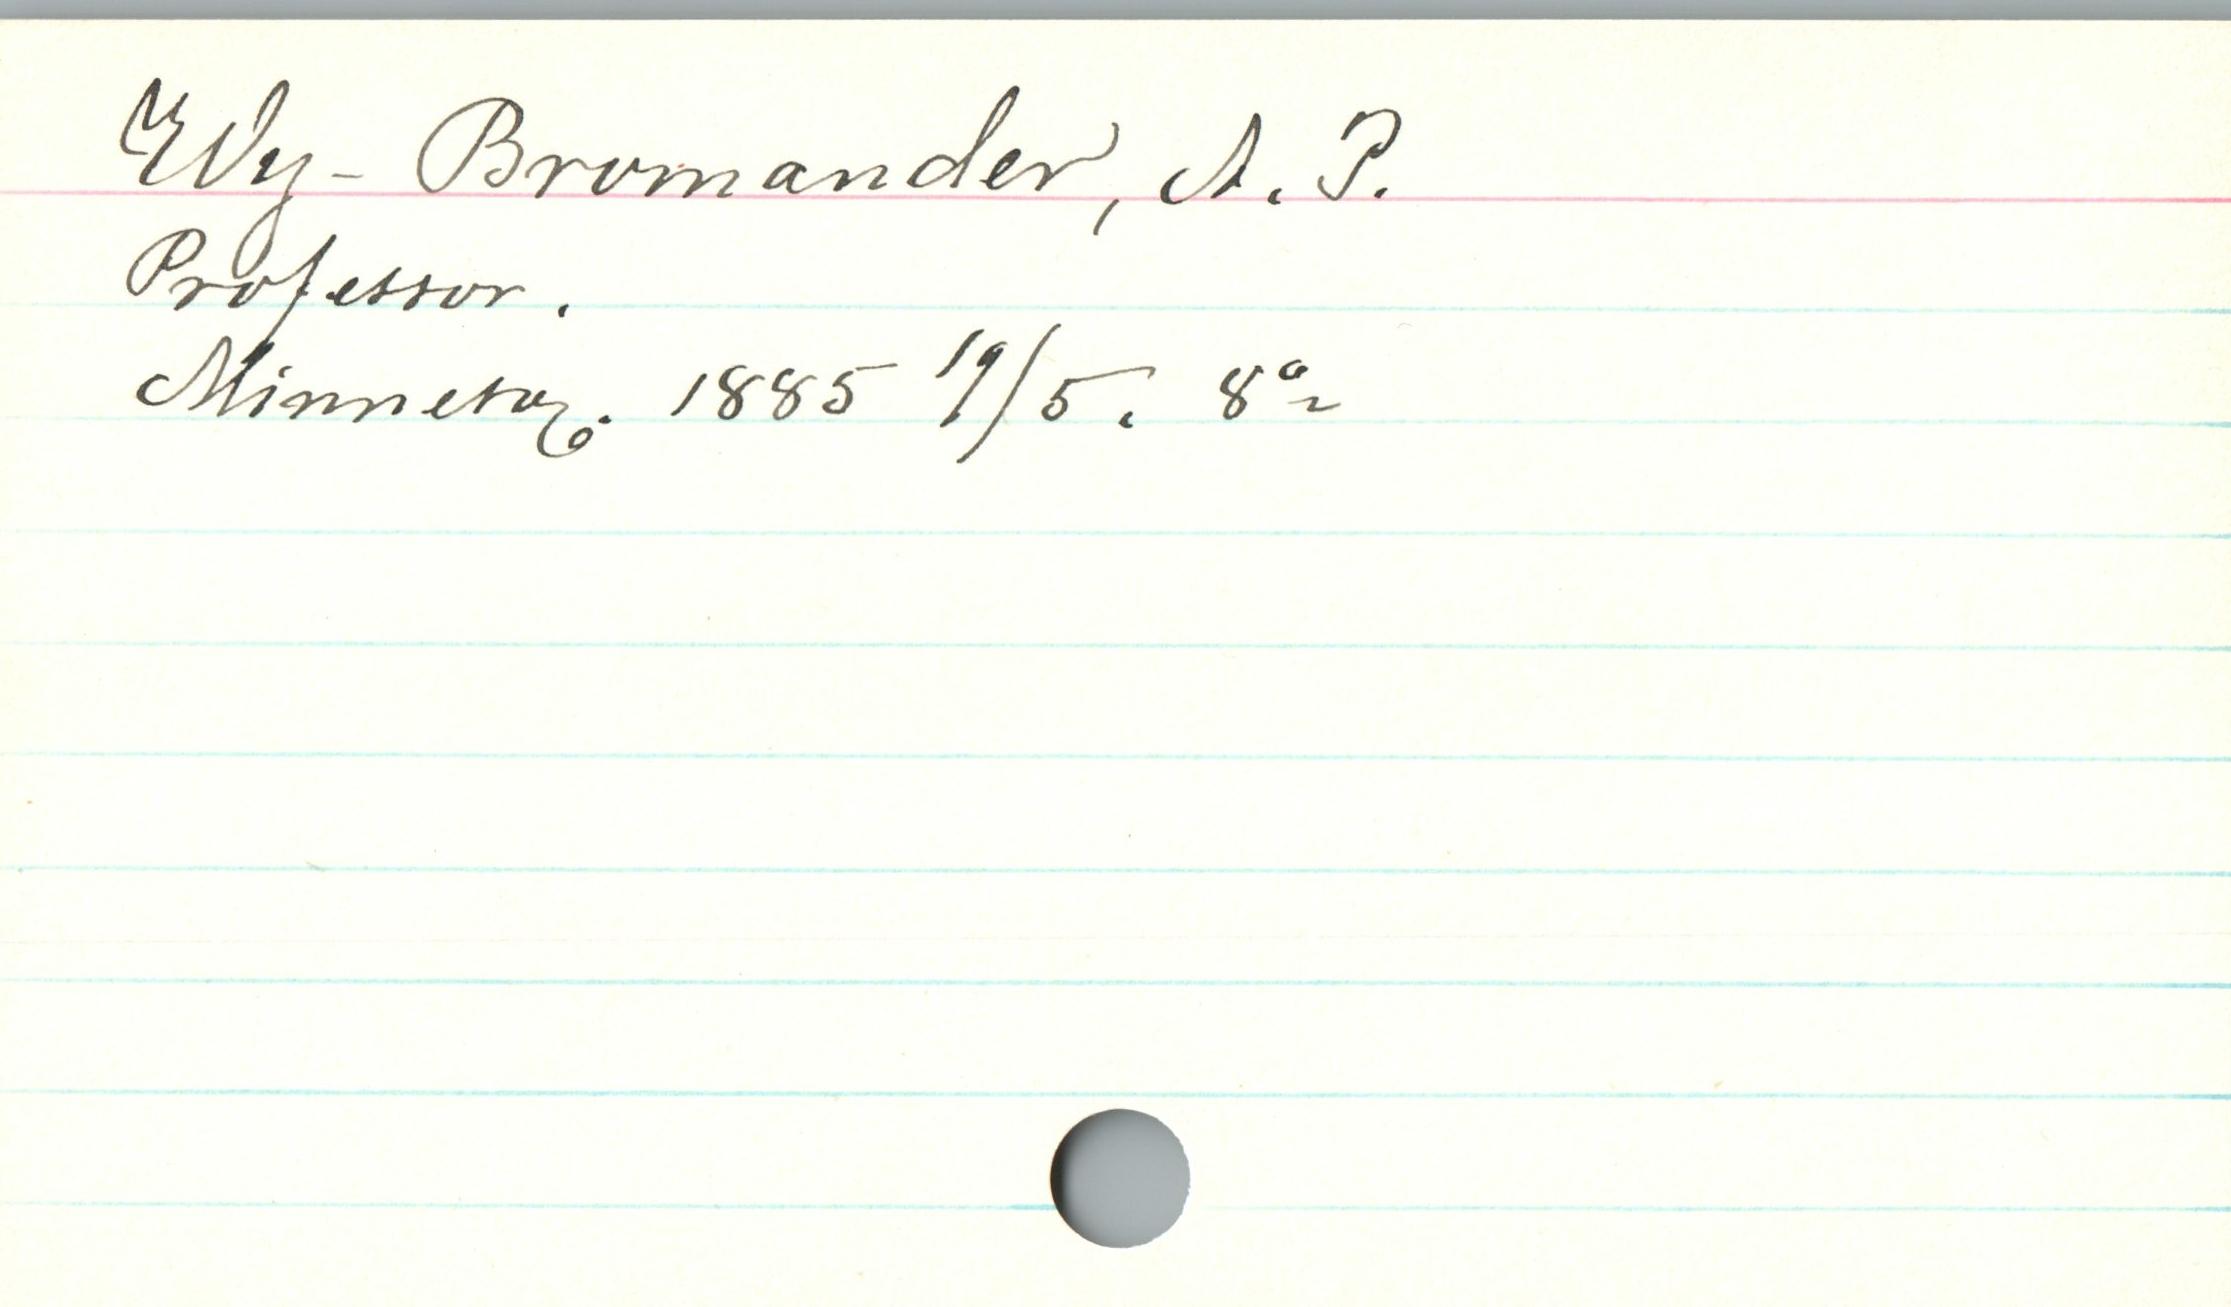 Wy-Bromander, A. P.
Professor.
Minnesag. 1885 19/5. 8º